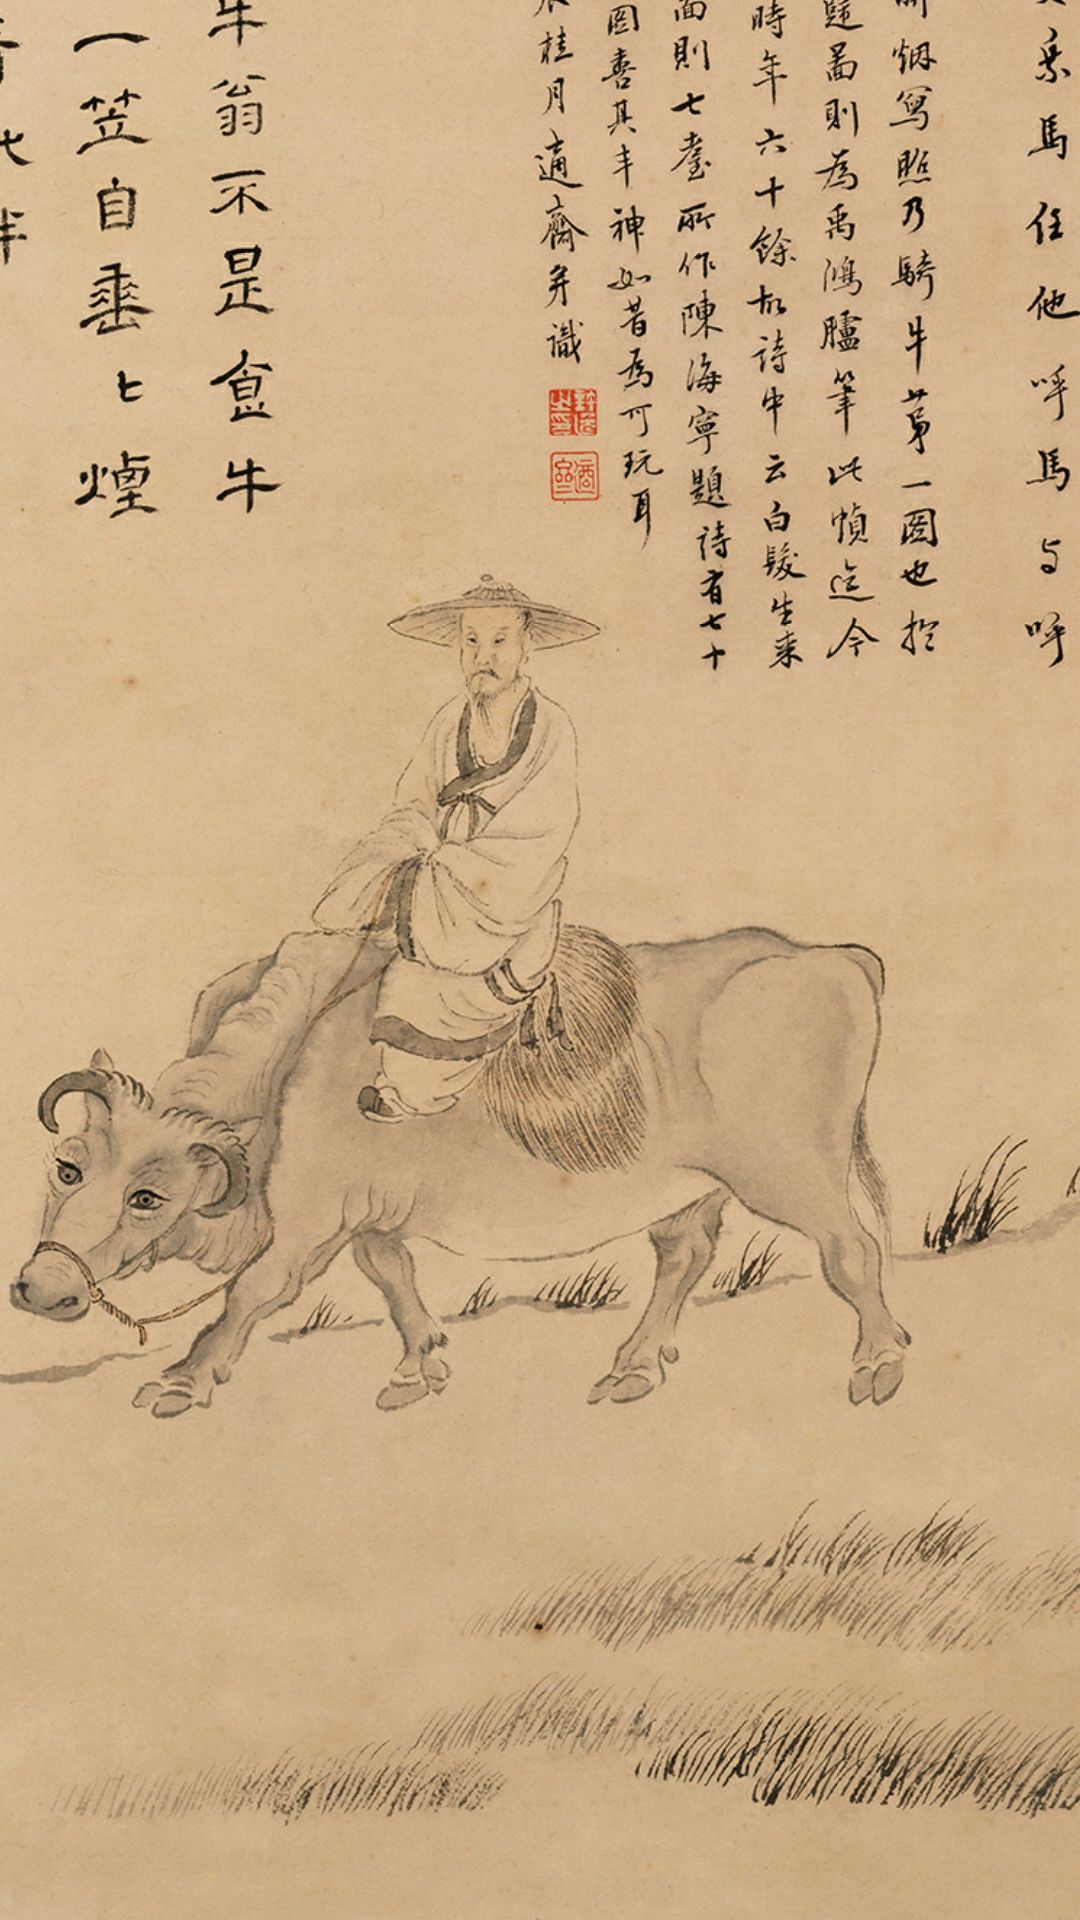 乘馬任他呼馬与呼
烟寫照乃騎牛苐一圖也於
題圖則為禹鴻臚筆此幀迄今
時年六十餘故詩中云白髮生来
面則七耋所作陳海寧題詩有七十
圖喜其丰神如昔為可玩耳
桂月適齋并識
牛翁不是食牛
一笠自垂匕煙